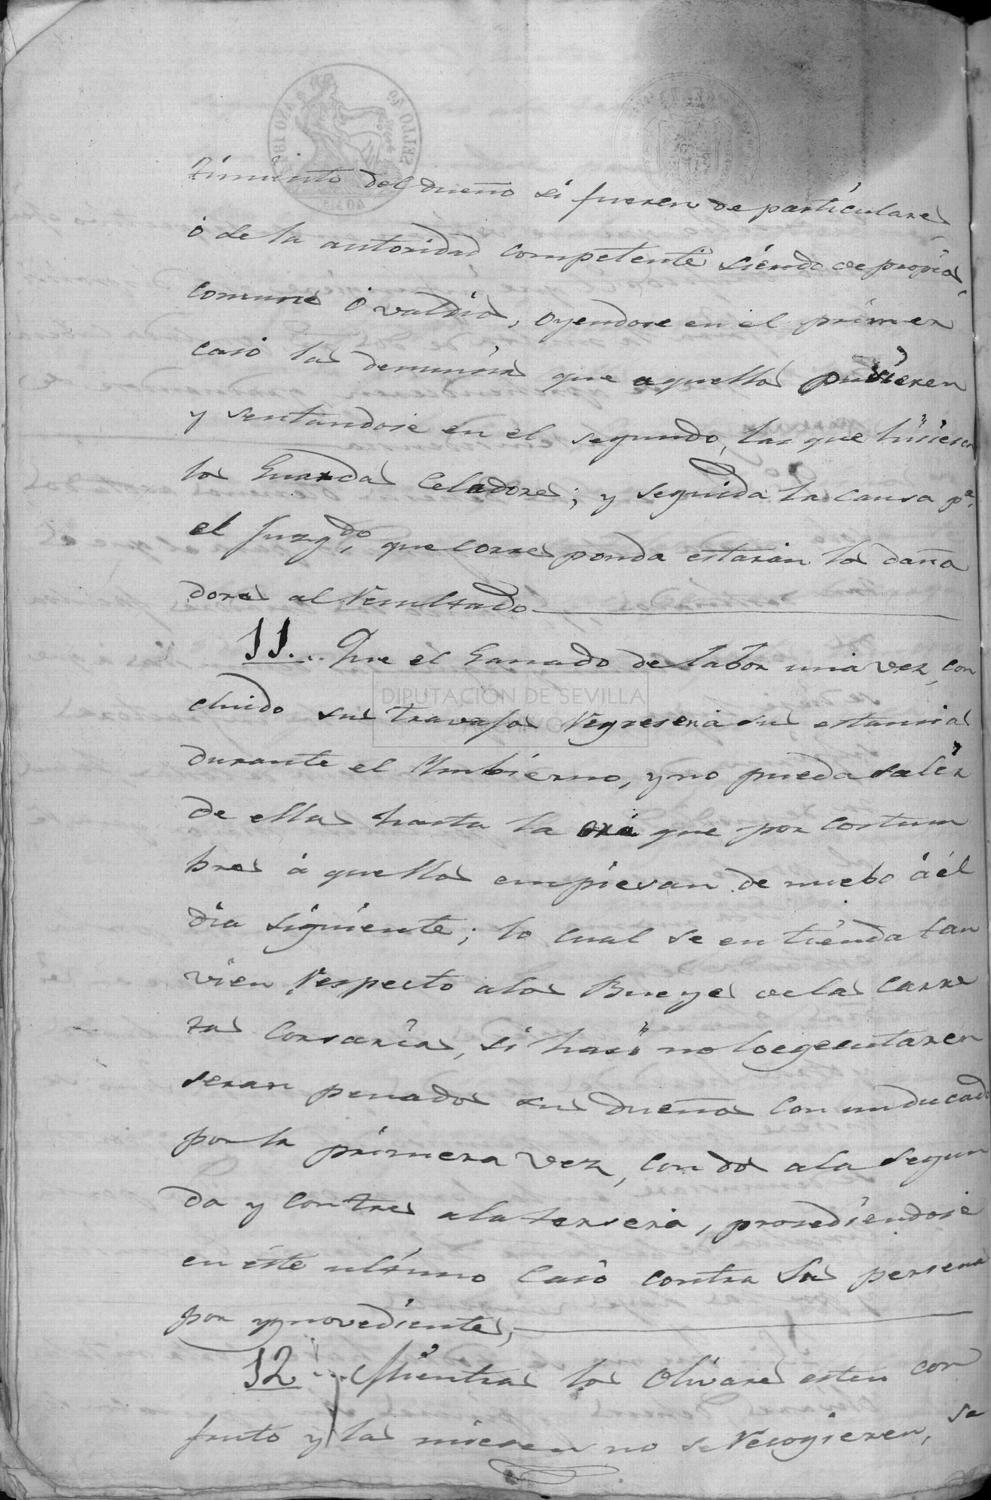 timiento del dueño si fueren de particulares
ó de la autoridad competente siendo de propios
comunes ó valdios, oyendose en el primer
caso las denuncias que aquellos pusieren
y sentandose en el segundo, las que hiciesen
los Guardas Celadores; y seguida la causa pr.
el Juzgdo, que corresponda estarán los daña
dores al Resultado
11... Que el Ganado de labor una vez, con
cluido sus travajos Regresera sus estancias
durante el Ymbierno, y no pueda salir
de ellas hasta la ora que por costum
bres á quellos empiesan de nuebo á él
dia siguiente; lo cual se entienda tan
vien Respecto a los Bueyes de las Carre
tas Corsarias, si hasi no lo egecutaren
seran penados sus dueños con un ducado
por la primera vez, con dos a la segun
da y con tres a la tersera, prosediendose
en este ultimo caso contra sus persona
por ynovedientes,
12... Mientras los Olivares esten con
fruto y las mieses no se Recogieren, se
DIPUTACIÓN DE SEVILLA